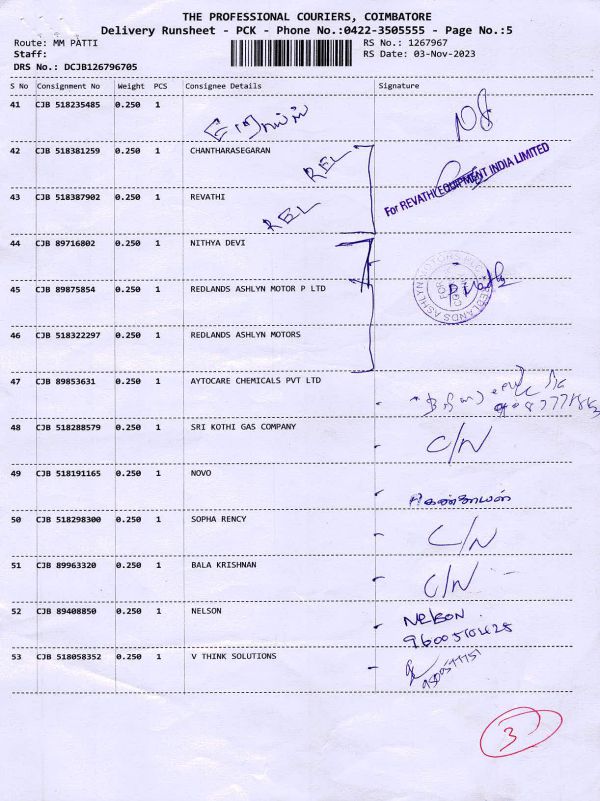 THE PROFESSIONAL COURIERS, COIMBATORE
Delivery Runsheet - PCK - Phone No.:0422-3505555 - Page No.:5
Route: MM PATTI RS No.: 1267967
Staff: RS Date: 03-Nov-2023
DRS No.: DCJB126796705
S No Consignment No Weight PCS Consignee Details Signature
41 CJB 518235485 0.250 1
42 CJB 518381259 0.250 1 CHANTHARASEGARAN REL
For REVATHI EQUIPMENT INDIA LIMITED
43 CJB 518387902 0.250 1 REVATHI REL
44 CJB 89716802 0.250 1 NITHYA DEVI
45 CJB 89875854 0.250 1 REDLANDS ASHLYN MOTOR P LTD
REDLANDS ASHLYN MOTORS
FOR
46 CJB 518322297 0.250 1 REDLANDS ASHLYN MOTORS
47 CJB 89853631 0.250 1 AYTOCARE CHEMICALS PVT LTD
48 CJB 518288579 0.250 1 SRI KOTHI GAS COMPANY C/N
49 CJB 518191165 0.250 1 NOVO
50 CJB 518298300 0.250 1 SOPHA RENCY C/N
51 CJB 89963320 0.250 1 BALA KRISHNAN C/N
52 CJB 89408850 0.250 1 NELSON Nelson
53 CJB 518058352 0.250 1 V THINK SOLUTIONS
3